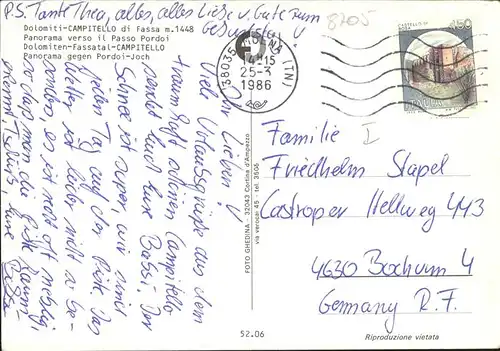 P.S. Tante Theo, alles, alles Liebe u. Gute zum
Geburtstag !
Dolomiti-CAMPITELLO di Fassa m.1448
Panorama verso il Passo Pordoi
Dolomiten-Fassatal-CAMPITELLO
Panorama gegen Pordoi-Joch
Ihr Lieben !
Viele Urlaubsgrüße aus dem
traumhaft schönen Campitello
sendet Euch Eure Bassi. Der
Schnee ist super, wir sind
jeden Tag auf der Piste. Das
Wetter ist leider nicht so
so daß man die
Tschüß Eure
FOTO GHEDINA - 32043 Cortina d'Ampezzo
via verocai 45 - tel. 3506
52.06
38035 MOENA (TN)
14-15
25-3
1986
8205
CASTELLO DI
450
ITALIA
Familie I
Friedhelm Stapel
Castroper Hellweg 443
4630 Bochum 4
Germany R.F.
Riproduzione vietata